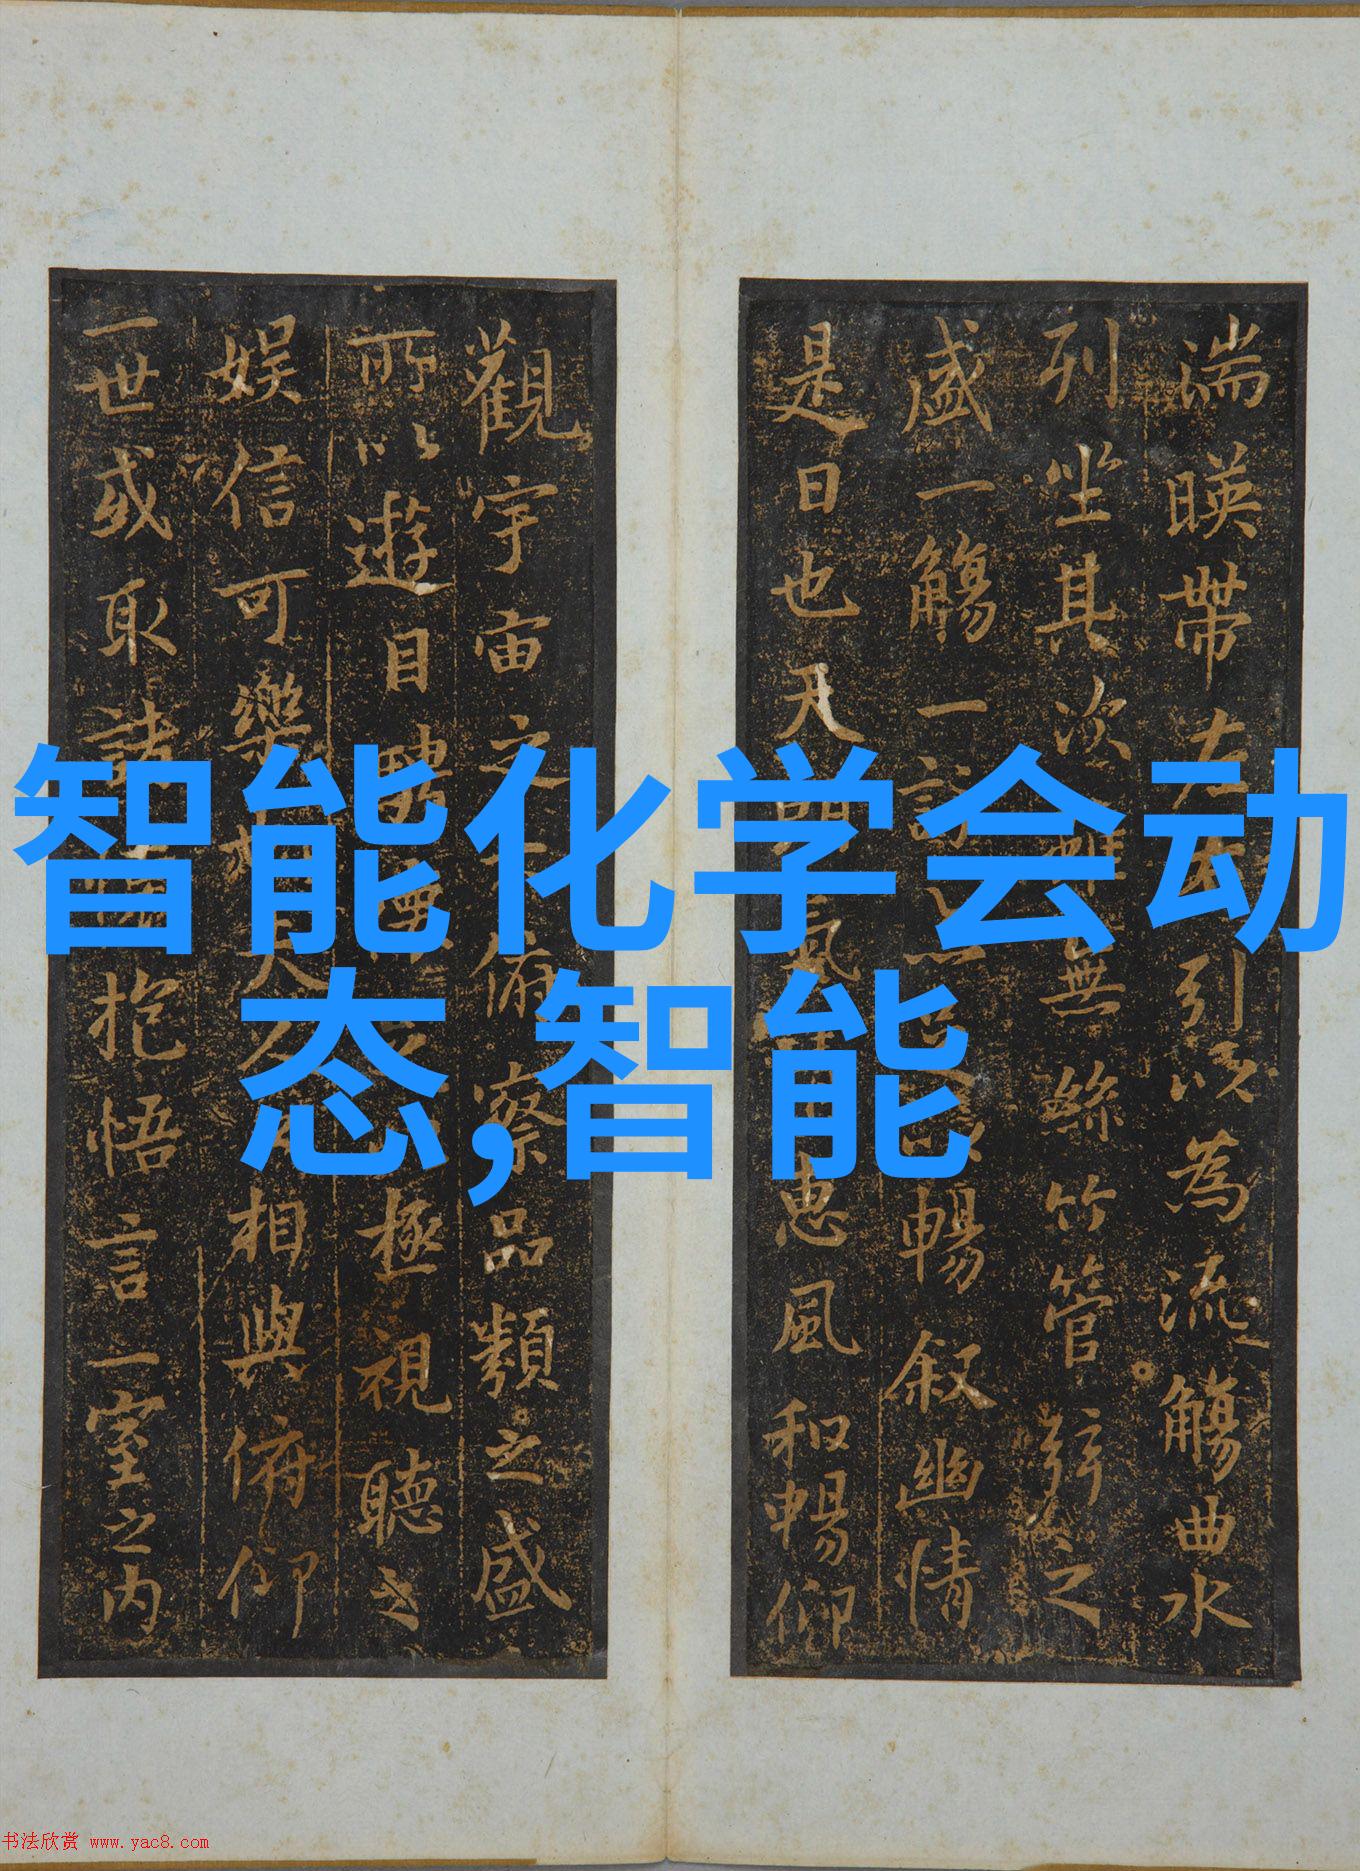 湍暎帶左右引以為流觴曲水
列坐其次雖無絲竹管弦之
盛一觴一詠暢叙幽情
是日也天朗氣惠風和暢仰
觀宇宙之大俯察品類之盛
所以遊目騁懷極視聽之
娛信可樂也夫人之相與俯仰
一世或取諸懷抱悟言一室之內
智能化学会动
态,智能
书法欣赏 www.yac8.com